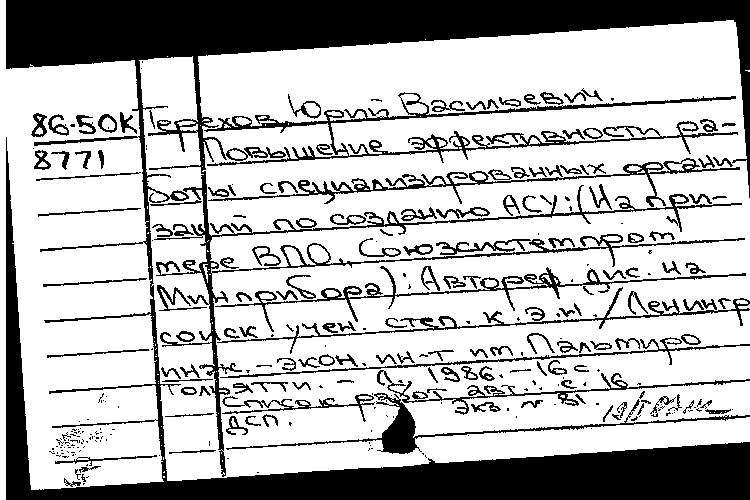 86-50К Терехов, Юрий Васильевич.
8771 Повышение эффективности ра-
боты специализированных органи-
заций по созданию АСУ: (На при-
мере ВПО „Союзсистемпром"
Минприбора): Автореф. дис. на
соиск. учен. степ. к.э.н. / Ленингр
инж.-экон. ин-т им. Пальмиро
Тольятти. - Л., 1986. - 16 с.
Список работ авт.: с. 16.
ДСП. Экз. № 81.